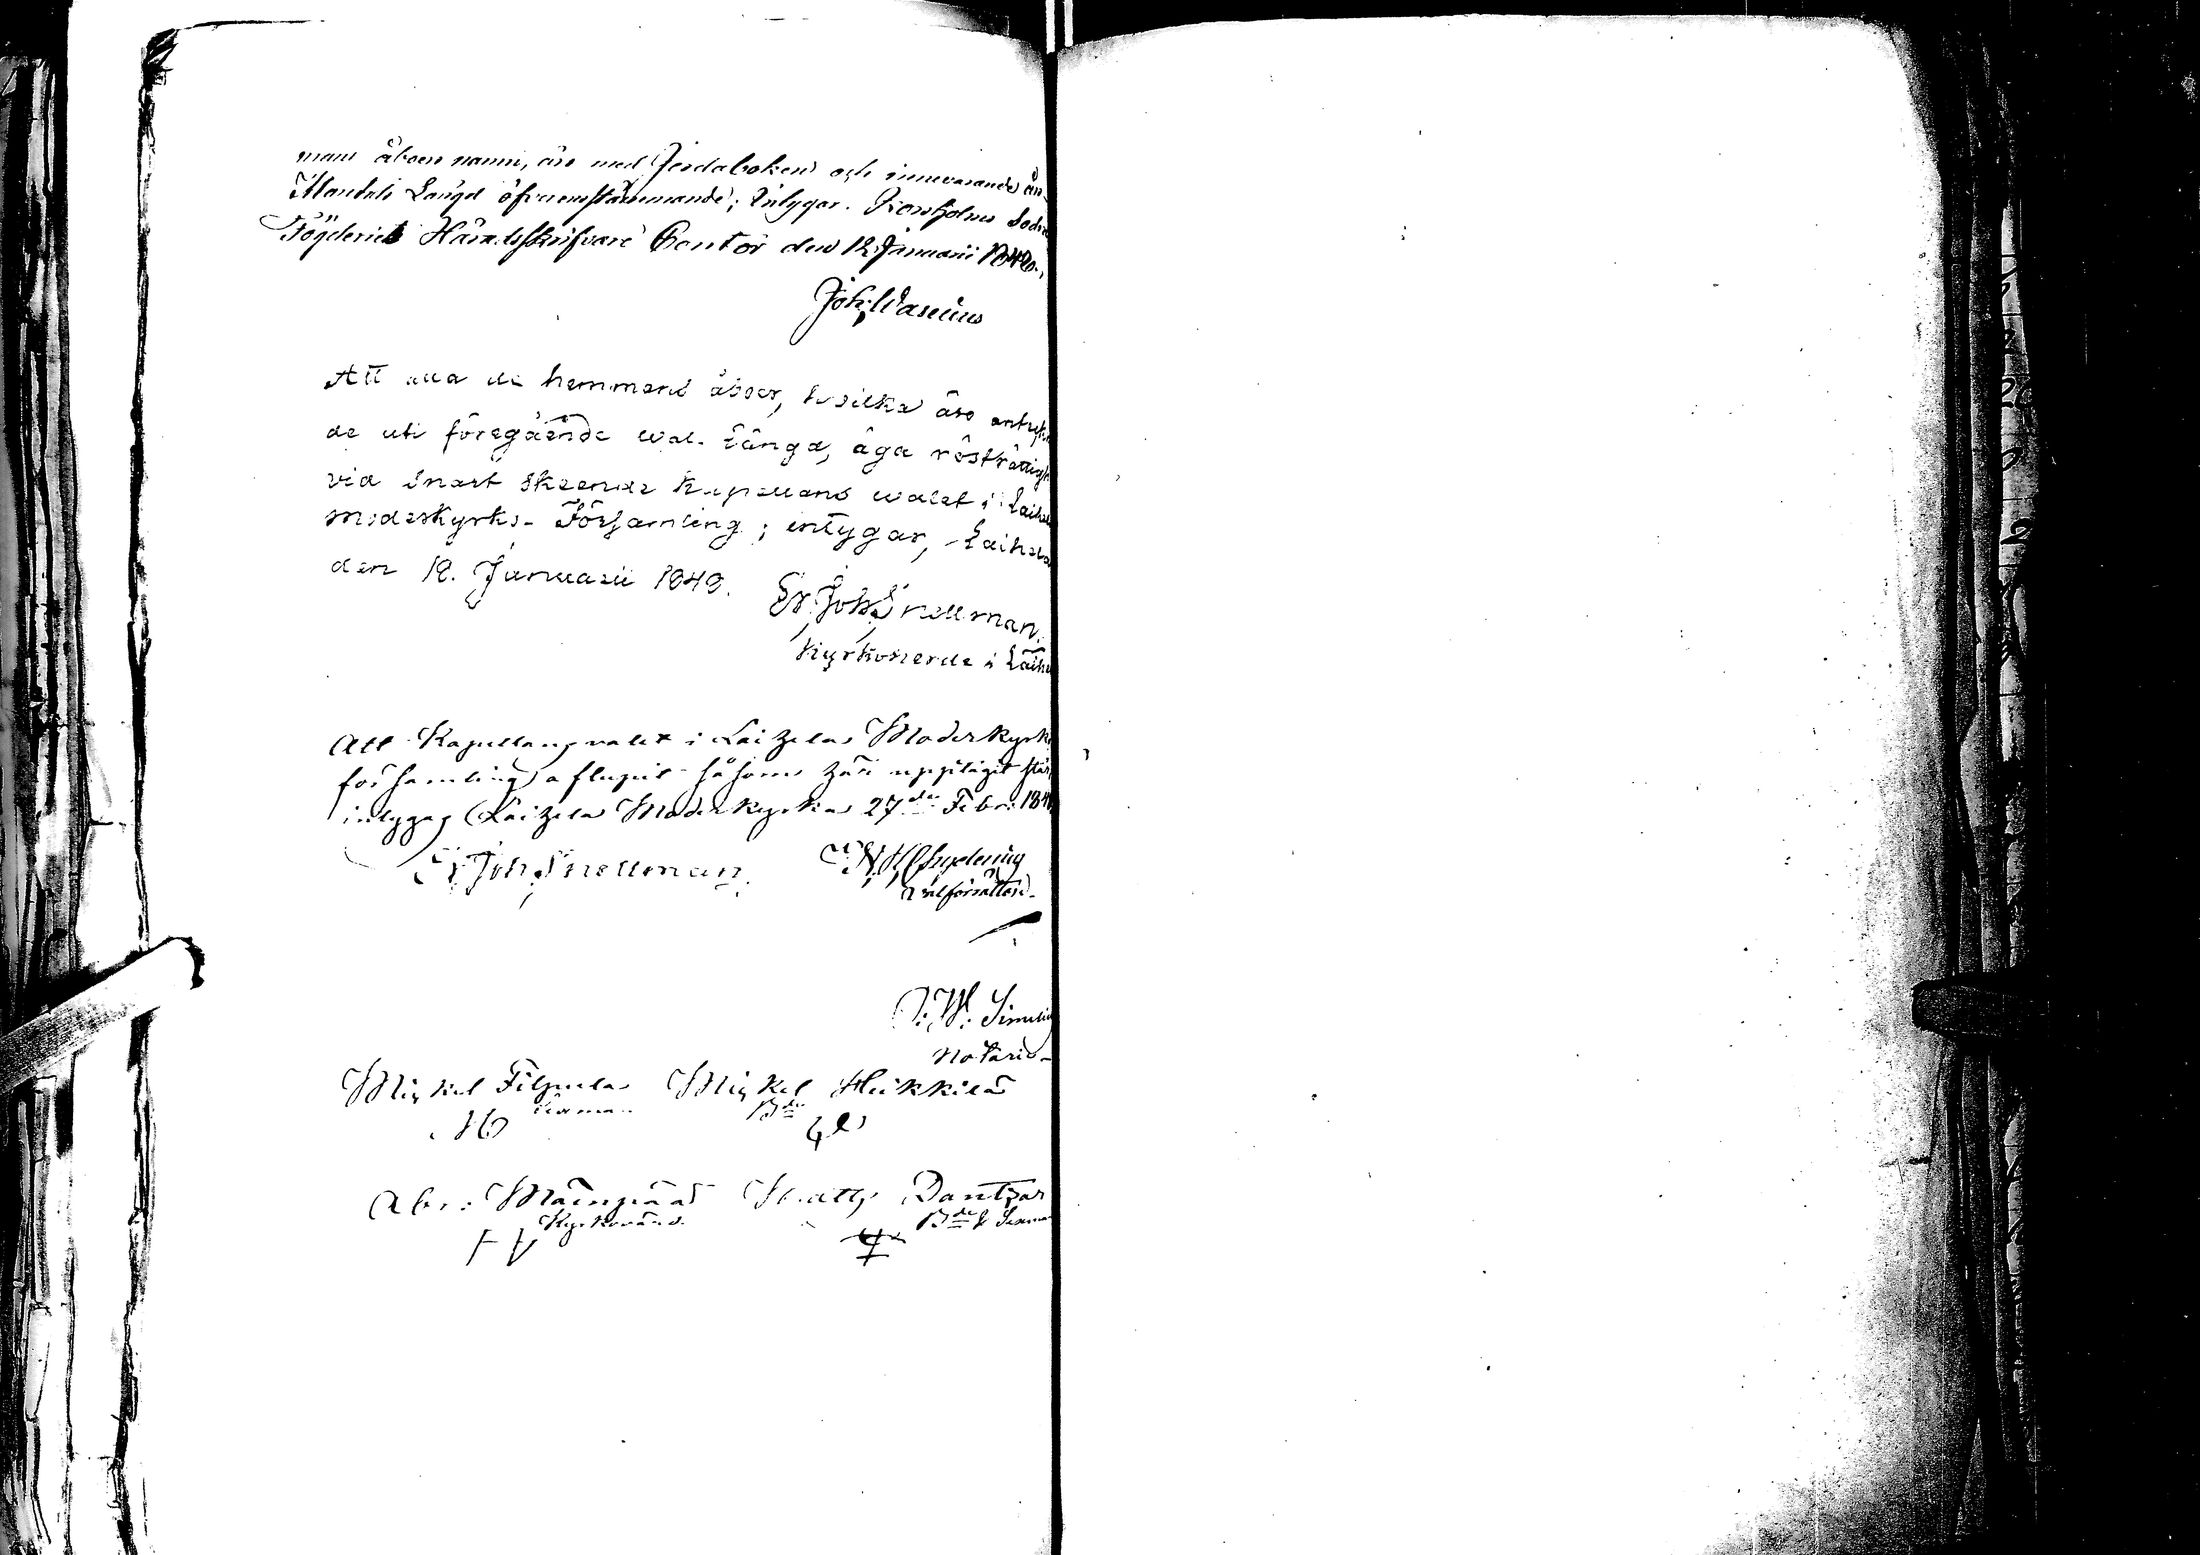 mans åboers namn, äro med Jordaboken och innevarande års
Mantals Längd öfverensstämmande; intygar. Korsholms Södra
Fögderiets Häradsskrifvare Contor den 12 Januarii 1849.
Joh: Wasenius
Att alla de hemmans åboer, hvilka äro anteckna
de uti föregående val längd, äga rösträttighet
vid snart skeende Kapellans valet i Laihela
moderkyrko-Församling; intygar, Laihela
den 12. Januarii 1849.
Er. Joh. Snellman.
Kyrkoherde i Laihela
Att Kapellansvalet i Laihela Moderkyrko
församling aflupit såsom här upptagit står,
intygas Laihela Moderkyrka 27de Febr: 1849
Er. Joh. Snellman.
Valförrättare.
J: W: Simelius
Notarie
Michel Filpula Michel Heikkilä
Sexman Bde
Abr: Mainpää Matts Dantzar
Kyrkovärd Bde & Sexman